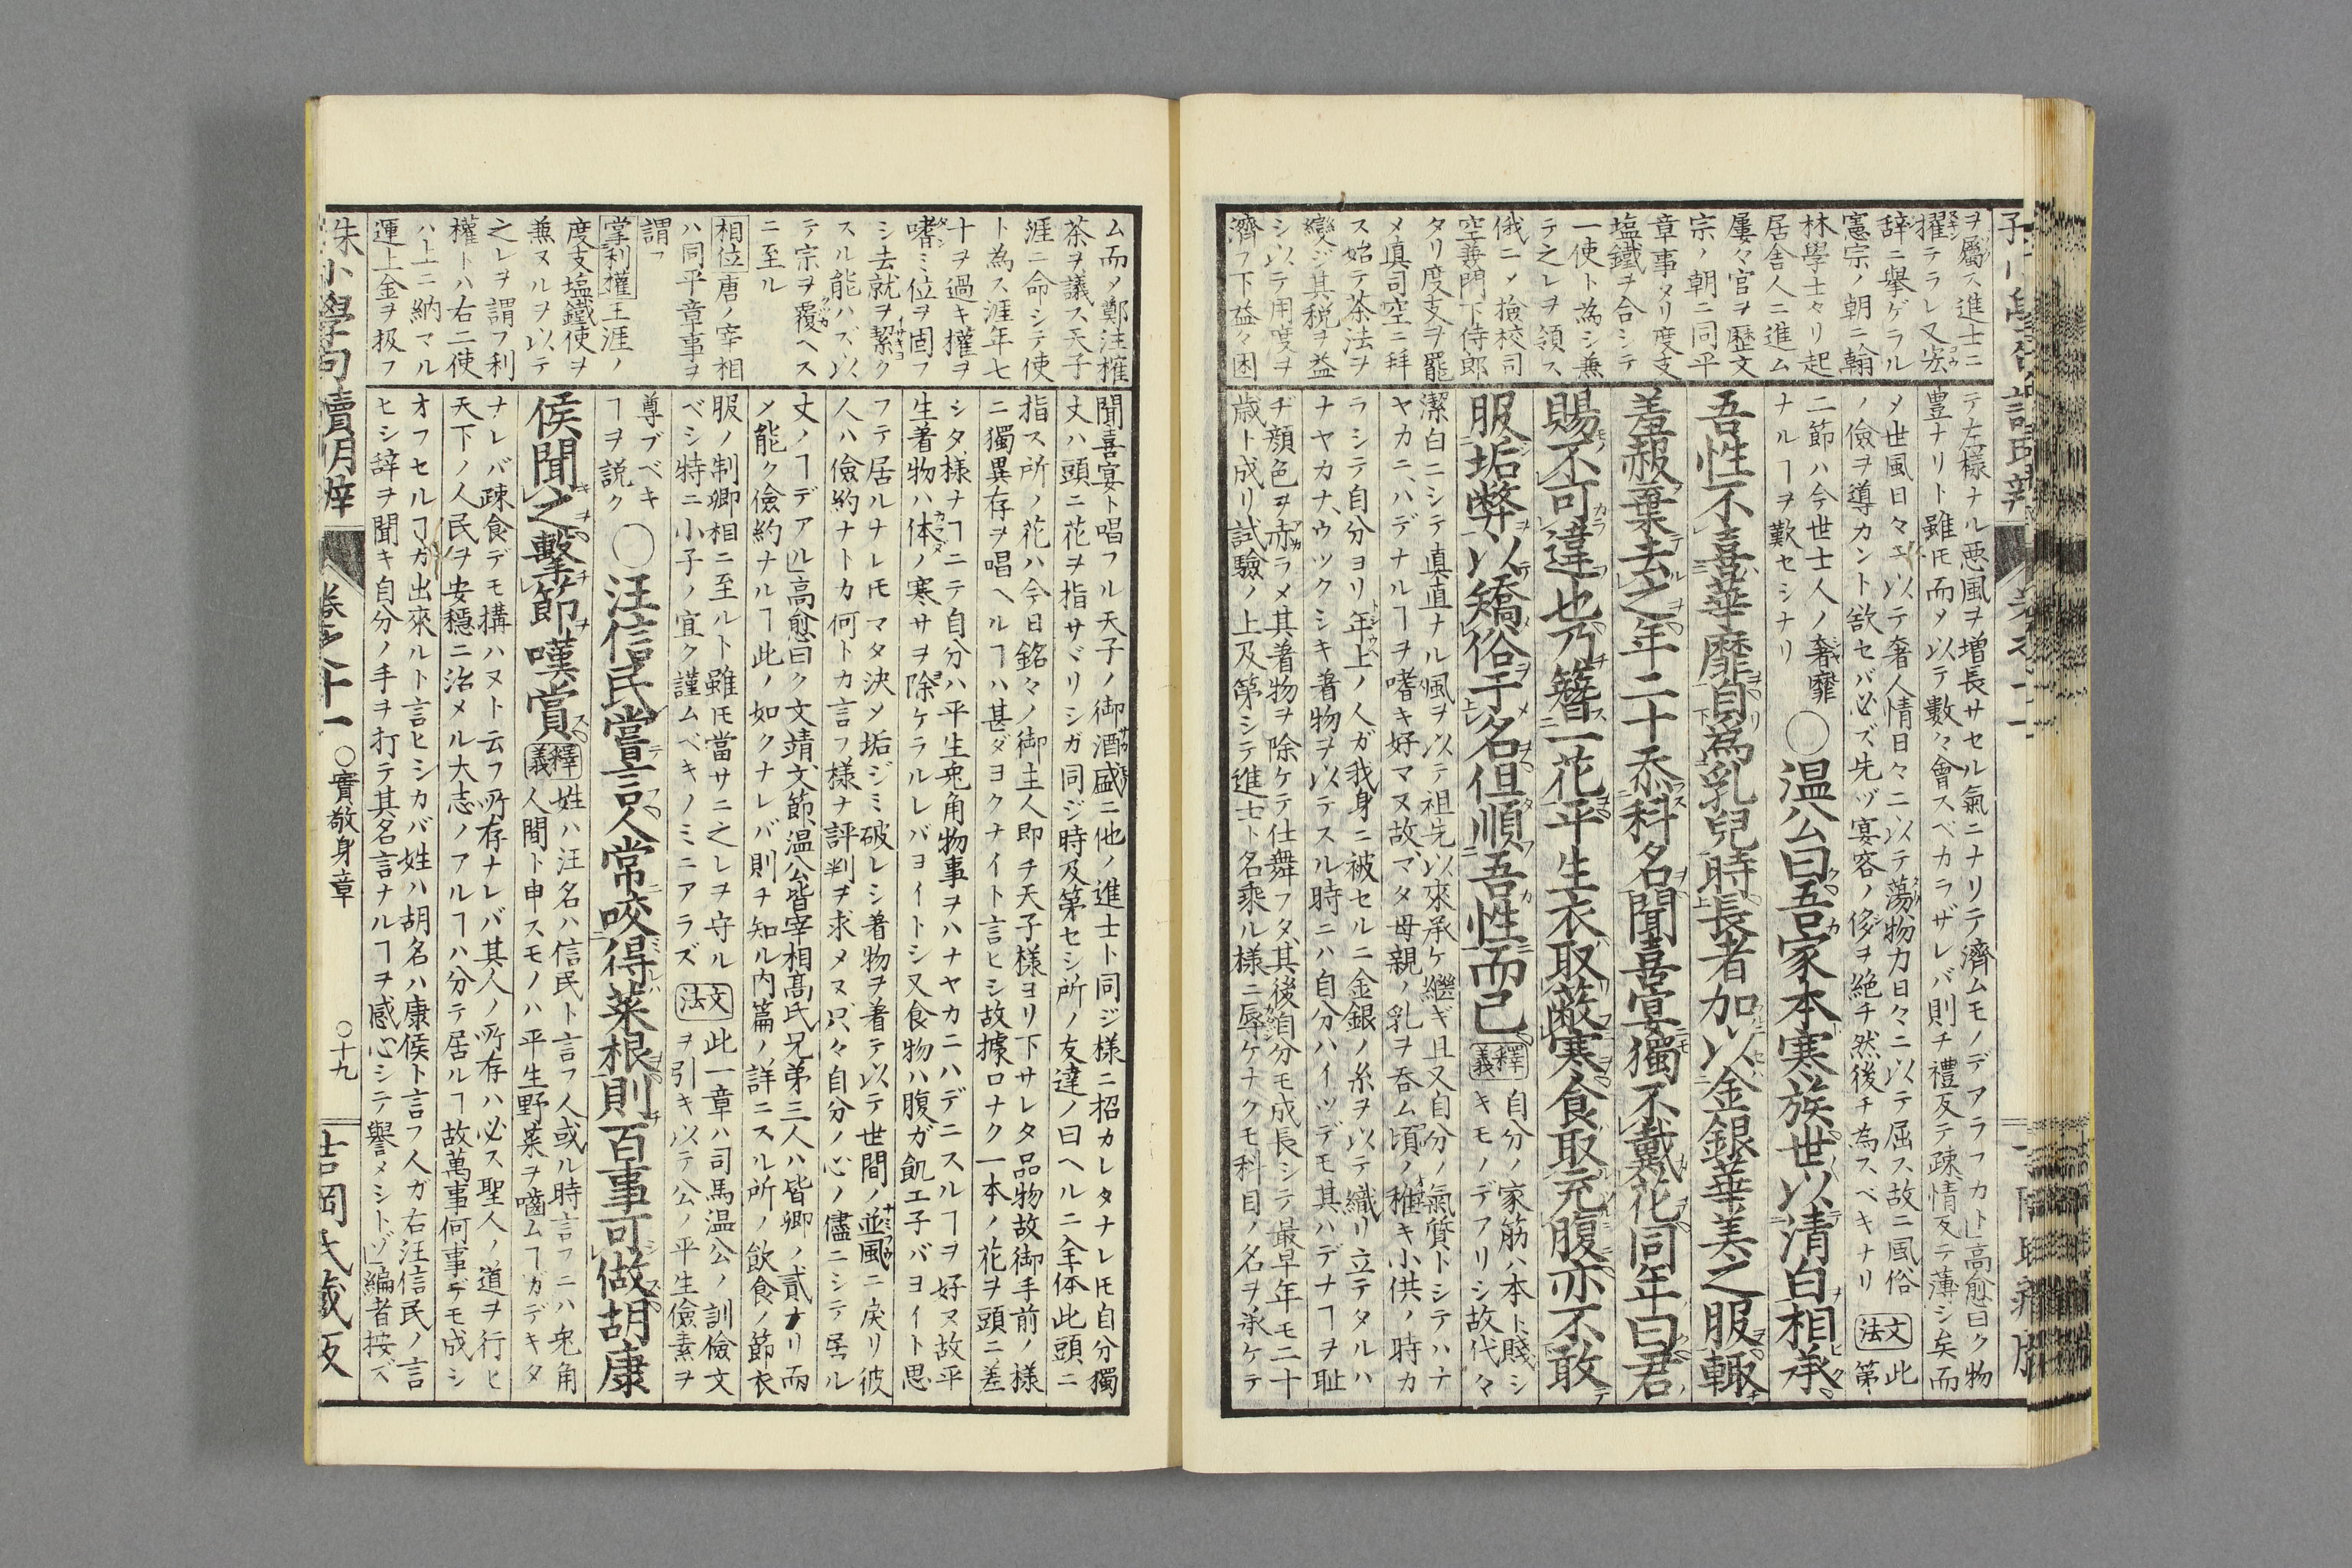 ヲ屬ス進士ニ
擢テラレ又宏
辞ニ擧ゲラル
憲宗ノ朝ニ翰
林學士タリ起
居舎人ニ進ム
屢々官ヲ歴文
宗ノ朝ニ同平
章事メリ度支
塩鐵ヲ合シテ
一使ト為シ兼
テ之レヲ領ス
俄ニメ撿校司
空兼門下侍郎
タリ度支ヲ罷
メ真司空ニ拜
ス始テ茶法ヲ
變ジ其税ヲ益
シ以テ用度ヲ
濟フ下益々困
テ左様ナル悪風ヲ増長サセル氣ニナリテ濟ムモノデアラフカト」高愈曰ク物
豊ナリト雖モ而メ以テ數々會スベカラザレバ則チ禮反テ疎情反テ薄シ矣而
メ世風日々ニ以テ奢人情日々ニ以テ蕩物力日々ニ以テ屈ス故ニ風俗
ノ儉ヲ導カント欲セバ必ズ先ヅ宴客ノ侈ヲ絶チ然後チ為スベキナリ
文法
此第
二節ハ今世士人ノ奢靡
ナルヿヲ歎セシナリ
○温公曰吾家本寒族世以清白相承
吾性不喜華靡自為乳兒時長者加以金銀華美之服輙
羞赧棄去之年二十忝科名聞喜宴獨不戴花同年曰君
賜不可違也乃簪一花平生衣取蔽寒食取充腹亦不敢
服垢弊以矯俗于名但順吾性而已
釋義
自分ノ家筋ハ本ト賤シ
キモノデアリシ故代々
潔白ニシテ真直ナル風ヲ以テ祖先以來承ケ繼ギ且又自分ノ氣質トシテハナ
ヤカニ、ハデナルヿヲ嗜キ好マヌ故、マタ母親ノ乳ヲ呑ム頃ノ稚キ小供ノ時カ
ラシテ自分ヨリ年上ノ人ガ我身ニ被セルニ金銀ノ糸ヲ以テ織リ立テタルハ
ナヤカナ、ウツクシキ着物ヲ以テスル時ニハ自分ハイツデモ其ハデナヿヲ耻
ヂ顔色ヲ赤ラメ其着物ヲ除ケテ仕舞フタ、其後自分モ成長シテ最早年モ二十
歳ト成リ試驗ノ上及第シテ進士ト名乘ル様ニ辱ケナクモ科目ノ名ヲ承ケテ
ム而メ鄭注榷
茶ヲ議ス天子
涯ニ命シテ使
ト為ス涯年七
十ヲ過キ權ヲ
嗜ミ位ヲ固フ
シ去就ヲ絜ク
スル能ハズ以
テ宗ヲ覆ヘス
ニ至ル
相位唐ノ宰相
ハ同平章事ヲ
謂フ
掌利權王涯ノ
度支塩鐵使ヲ
兼ヌルヲ以テ
之レヲ謂フ利
權トハ右二使
ハ上ニ納マル
運上金ヲ扱フ
聞喜宴ト唱フル天子ノ御酒盛ニ他ノ進士ト同ジ様ニ招カレタナレモ自分獨
ハ頭ニ花ヲ指サヾリシガ同ジ時及第セシ所ノ友達ノ曰ヘルニ全体此頭ニ
指ス所ノ花ハ今日銘々ノ御主人即チ天子様ヨリ下サレタ品物故御手前ノ様
ニ獨異存ヲ唱ヘルヿハ甚ダヨクナイト言ヒシ故據ロナク一本ノ花ヲ頭ニ差
シタ、様ナヿニテ自分ハ平生兎角物事ヲハナヤカニハデニスルヿヲ好ヌ故平
生着物ハ体ノ寒サヲ除ケラルレバヨイトシ又食物ハ腹ガ飢エ子バヨイト思
フテ居ルナレモマタ決メ垢ジミ破レシ着物ヲ着テ以テ世間ノ並風ニ戻リ彼
人ハ儉約ナトカ何トカ言フ様ナ評判ヲ求メヌ只々自分ノ心ノ儘ニシテ居ル
丈ノヿデアル」高愈曰ク文靖文節温公皆宰相高氏兄弟三人ハ皆卿ノ貳ナリ而
メ能ク儉約ナルヿ此ノ如クナレバ則チ知ル内篇ノ詳ニスル所ノ飲食ノ節衣
服ノ制卿相ニ至ルト雖モ當サニ之レヲ守ル
ベシ特ニ小子ノ宜ク謹ムベキノミニアラズ
文法
此一章ハ司馬温公ノ訓儉文
ヲ引キ以テ公ノ平生儉素ヲ
尊ブベキ
ヿヲ説ク
○汪信民嘗言人常咬得菜根則百事可做胡康
侯聞之擊節嘆賞
釋義
姓ハ汪名ハ信民ト言フ人或ル時言フニハ兎角
人間ト申スモノハ平生野菜ヲ嚙ムヿガデキタ
ナレバ疎食デモ搆ハヌト云フ所存ナレバ其人ノ所存ハ必ス聖人ノ道ヲ行ヒ
天下ノ人民ヲ安穏ニ治メル大志ノアルヿハ分テ居ルヿ故萬事何事デモ成シ
オフセルヿガ出來ルト言ヒシカバ姓ハ胡名ハ康侯ト言フ人ガ右汪信民ノ言
ヒシ辞ヲ聞キ自分ノ手ヲ打テ其名言ナルヿヲ感心シテ譽メシトゾ」編者按ズ
朱小學句讀明辨 卷之十一 ○實敬身章 ○十九 吉岡氏藏版